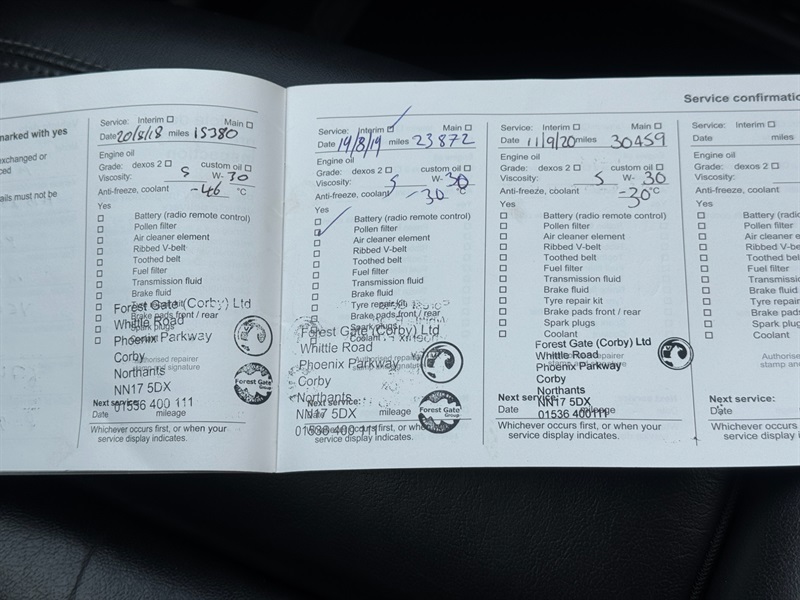 Service confirmatio
marked with yes
exchanged or
ced
ails must not be
Service: Interim Main
Date 20/8/18 miles 15380
Engine oil
Grade: dexos 2 custom oil
Viscosity: 5 W- 30
Anti-freeze, coolant -46 °C
Yes
Battery (radio remote control)
Pollen filter
Air cleaner element
Ribbed V-belt
Toothed belt
Fuel filter
Transmission fluid
Brake fluid
Tyre repair kit
Brake pads front / rear
Spark plugs
Coolant
Forest Gate (Corby) Ltd
Whittle Road
Phoenix Parkway
Corby
Northants
NN17 5DX
01536 400 111
Authorised repairer
stamp and signature
Forest Gate
Next service:
Date mileage
Whichever occurs first, or when your
service display indicates.
Service: Interim Main
Date 19/8/19 miles 23872
Engine oil
Grade: dexos 2 custom oil
Viscosity: 5 W- 30
Anti-freeze, coolant -30 °C
Yes
Battery (radio remote control)
Pollen filter
Air cleaner element
Ribbed V-belt
Toothed belt
Fuel filter
Transmission fluid
Brake fluid
Tyre repair kit
Brake pads front / rear
Spark plugs
Coolant
Forest Gate (Corby) Ltd
Whittle Road
Phoenix Parkway
Corby
Northants
NN17 5DX
01536 400 111
Authorised repairer
stamp and signature
Forest Gate
Group
Next service:
Date mileage
Whichever occurs first, or when
service display indicates.
Service: Interim Main
Date 11/9/20 miles 30459
Engine oil
Grade: dexos 2 custom oil
Viscosity: 5 W- 30
Anti-freeze, coolant -30 °C
Yes
Battery (radio remote control)
Pollen filter
Air cleaner element
Ribbed V-belt
Toothed belt
Fuel filter
Transmission fluid
Brake fluid
Tyre repair kit
Brake pads front / rear
Spark plugs
Coolant
Forest Gate (Corby) Ltd
Whittle Road
Phoenix Parkway
Corby
Northants
NN17 5DX
01536 400111
Authorised repairer
Next service:
Date mileage
Whichever occurs first, or when your
service display indicates.
Service: Interim
Date miles
Engine oil
Grade: dexos 2
Viscosity: W-
Anti-freeze, coolant
Yes
Battery (radio
Pollen filter
Air cleaner e
Ribbed V-be
Toothed bel
Fuel filter
Transmissio
Brake fluid
Tyre repair
Brake pads
Spark plug
Coolant
Authoris
stamp an
Next service:
Date
Whichever occurs
service display in